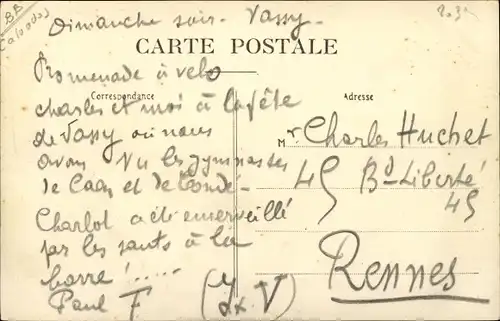 8A
(Calvados)
Dimanche soir. Vassy.
CARTE POSTALE
Correspondance
Adresse
Promenade à vélo
charles et moi à la fête
de Vassy où nous
avons vu les gymnastes
de Caen et de Condé.
Charlot a été émerveillé
par les sauts à la
barre !.....
Paul F
Mr Charles Huchet
45 Bd Liberté 45
Rennes